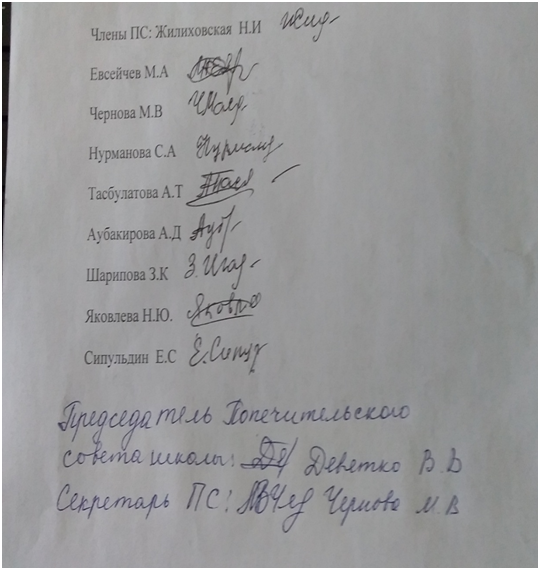 Члены ПС: Жилиховская Н.И
Евсейчев М.А
Чернова М.В
Нурманова С.А
Тасбулатова А.Т
Аубакирова А.Д
Шарипова З.К
Яковлева Н.Ю.
Сипульдин Е.С
Председатель Попечительского
совета школы: Деветко В. В
Секретарь ПС: Чернова М.В